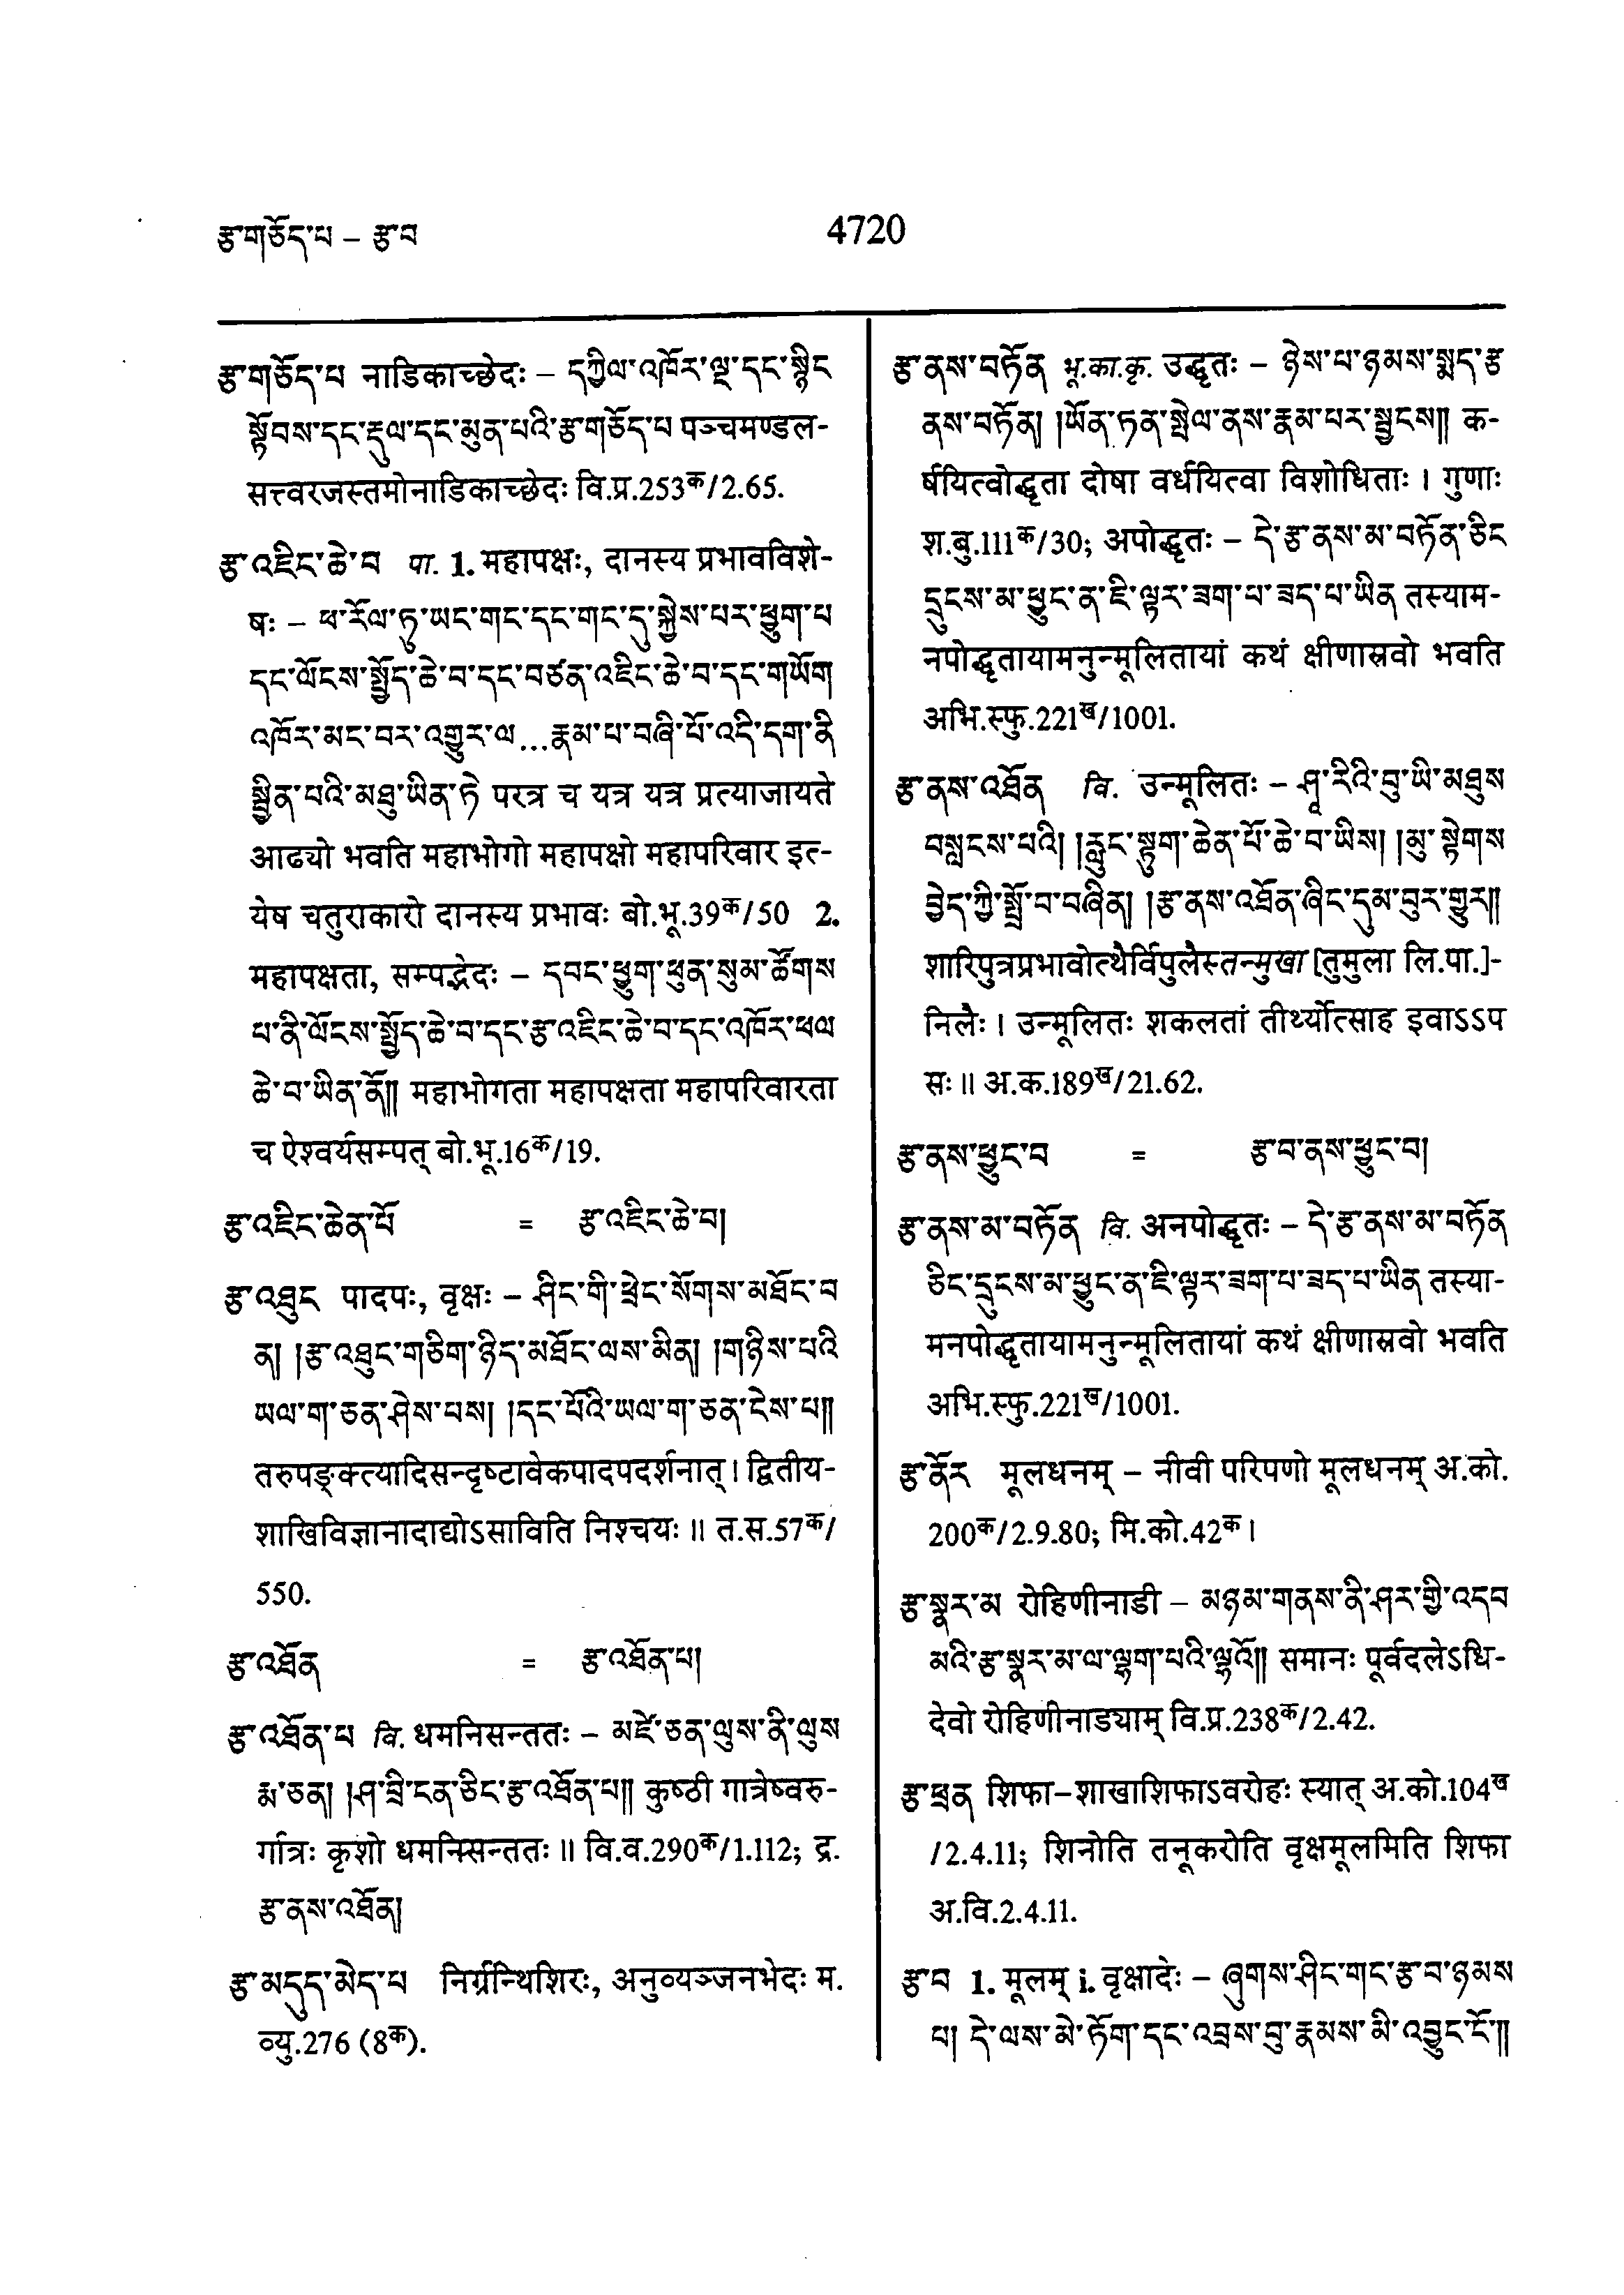 རྩ་གཅོད་པ – རྩ་བ
4720
རྩ་གཅོད་པ नाडिकाच्छेदः – དཀྱིལ་འཁོར་ལྔ་དང་སྙིང
སྟོབས་དང་རྡུལ་དང་མུན་པའི་རྩ་གཅོད་པ पञ्चमण्डल-
सत्त्वरजस्तमोनाडिकाच्छेदः वि.प्र.253क/2.65.
རྩ་འཇིང་ཆེ་བ पा. 1. महापक्षः, दानस्य प्रभावविशे-
षः – ཕ་རོལ་ཏུ་ཡང་གང་དང་གང་དུ་སྐྱེས་པར་ཕྱུག་པ
དང་ལོངས་སྤྱོད་ཆེ་བ་དང་བཙན་འཇིང་ཆེ་བ་དང་གཡོག
འཁོར་མང་བར་འགྱུར་ལ...རྣམ་པ་བཞི་པོ་འདི་དག་ནི
སྦྱིན་པའི་མཐུ་ཡིན་ཏེ परत्र च यत्र यत्र प्रत्याजायते
आढ्यो भवति महाभोगो महापक्षो महापरिवार इत्-
येष चतुराकारो दानस्य प्रभावः बो.भू.39क/50 2.
महापक्षता, सम्पद्भेदः – དབང་ཕྱུག་ཕུན་སུམ་ཚོགས
པ་ནི་ལོངས་སྤྱོད་ཆེ་བ་དང་རྩ་འཇིང་ཆེ་བ་དང་འཁོར་ཕལ
ཆེ་བ་ཡིན་ནོ།། महाभोगता महापक्षता महापरिवारता
च ऐश्वर्यसम्पत् बो.भू.16क/19.
རྩ་འཇིང་ཆེན་པོ = རྩ་འཇིང་ཆེ་བ།
རྩ་འཐུང पादपः, वृक्षः – ཤིང་གི་ཕྲེང་སོགས་མཐོང་བ
ན། །རྩ་འཐུང་གཅིག་ཉིད་མཐོང་ལས་མིན། །གཉིས་པའི
ཡལ་ག་ཅན་ཤེས་པས། །དང་པོའི་ཡལ་ག་ཅན་ངེས་པ།།
तरुपङ्क्त्यादिसन्दृष्टावेकपादपदर्शनात्। द्वितीय-
शाखिविज्ञानादाद्योऽसाविति निश्चयः॥ त.स.57क/
550.
རྩ་འཐོན = རྩ་འཐོན་པ།
རྩ་འཐོན་པ वि. धमनिसन्ततः – མཛེ་ཅན་ལུས་ནི་ལུས
རྨ་ཅན། །ཤ་བྲི་ངན་ཅིང་རྩ་འཐོན་པ།། कुष्ठी गात्रेष्वरु-
र्गात्रः कृशो धमनिसन्ततः॥ वि.व.290क/1.112; द्र.
རྩ་ནས་འཐོན།
རྩ་མདུད་མེད་པ निर्ग्रन्थिशिरः, अनुव्यञ्जनभेदः म.
व्यु.276 (8क).
རྩ་ནས་བཏོན भू.का.कृ. उद्धृतः – ཉེས་པ་ཉམས་སྨད་རྩ
ནས་བཏོན། །ཡོན་ཏན་སྤེལ་ནས་རྣམ་པར་སྦྱངས།། क-
र्षयित्वोद्धृता दोषा वर्धयित्वा विशोधिताः। गुणाः
श.बु.111क/30; अपोद्धृतः – དེ་རྩ་ནས་མ་བཏོན་ཅིང
དྲུངས་མ་ཕྱུང་ན་ཇི་ལྟར་ཟག་པ་ཟད་པ་ཡིན तस्याम-
नपोद्धृतायामनुन्मूलितायां कथं क्षीणास्रवो भवति
अभि.स्फु.221ख/1001.
རྩ་ནས་འཐོན वि. उन्मूलितः – ཤཱ་རིའི་བུ་ཡི་མཐུས
བསླངས་པའི། །རླུང་སྟུག་ཆེན་པོ་ཆེ་བ་ཡིས། །མུ་སྟེགས
བྱེད་ཀྱི་སྤྲོ་བ་བཞིན། །རྩ་ནས་འཐོན་ཞིང་དུམ་བུར་གྱུར།།
शारिपुत्रप्रभावोत्थैर्विपुलैस्तन्मुखा [तुमुला लि.पा.]-
निलैः। उन्मूलितः शकलतां तीर्थ्योत्साह इवाऽऽप
सः॥ अ.क.189ख/21.62.
རྩ་ནས་ཕྱུང་བ = རྩ་བ་ནས་ཕྱུང་བ།
རྩ་ནས་མ་བཏོན वि. अनपोद्धृतः – དེ་རྩ་ནས་མ་བཏོན
ཅིང་དྲུངས་མ་ཕྱུང་ན་ཇི་ལྟར་ཟག་པ་ཟད་པ་ཡིན तस्या-
मनपोद्धृतायामनुन्मूलितायां कथं क्षीणास्रवो भवति
अभि.स्फु.221ख/1001.
རྩ་ནོར मूलधनम् – नीवी परिपणो मूलधनम् अ.को.
200क/2.9.80; मि.को.42क।
རྩ་སྣར་མ रोहिणीनाडी – མཉམ་གནས་ནི་ཤར་གྱི་འདབ
མའི་རྩ་སྣར་མ་ལ་ལྷག་པའི་ལྷའོ།། समानः पूर्वदलेऽधि-
देवो रोहिणीनाड्याम् वि.प्र.238क/2.42.
རྩ་ཕྲན शिफा–शाखाशिफाऽवरोहः स्यात् अ.को.104ख
/2.4.11; शिनोति तनूकरोति वृक्षमूलमिति शिफा
अ.वि.2.4.11.
རྩ་བ 1. मूलम् i. वृक्षादेः – ཞུགས་ཤིང་གང་རྩ་བ་ཉམས
པ། དེ་ལས་མེ་ཏོག་དང་འབྲས་བུ་རྣམས་མི་འབྱུང་ངོ་།།